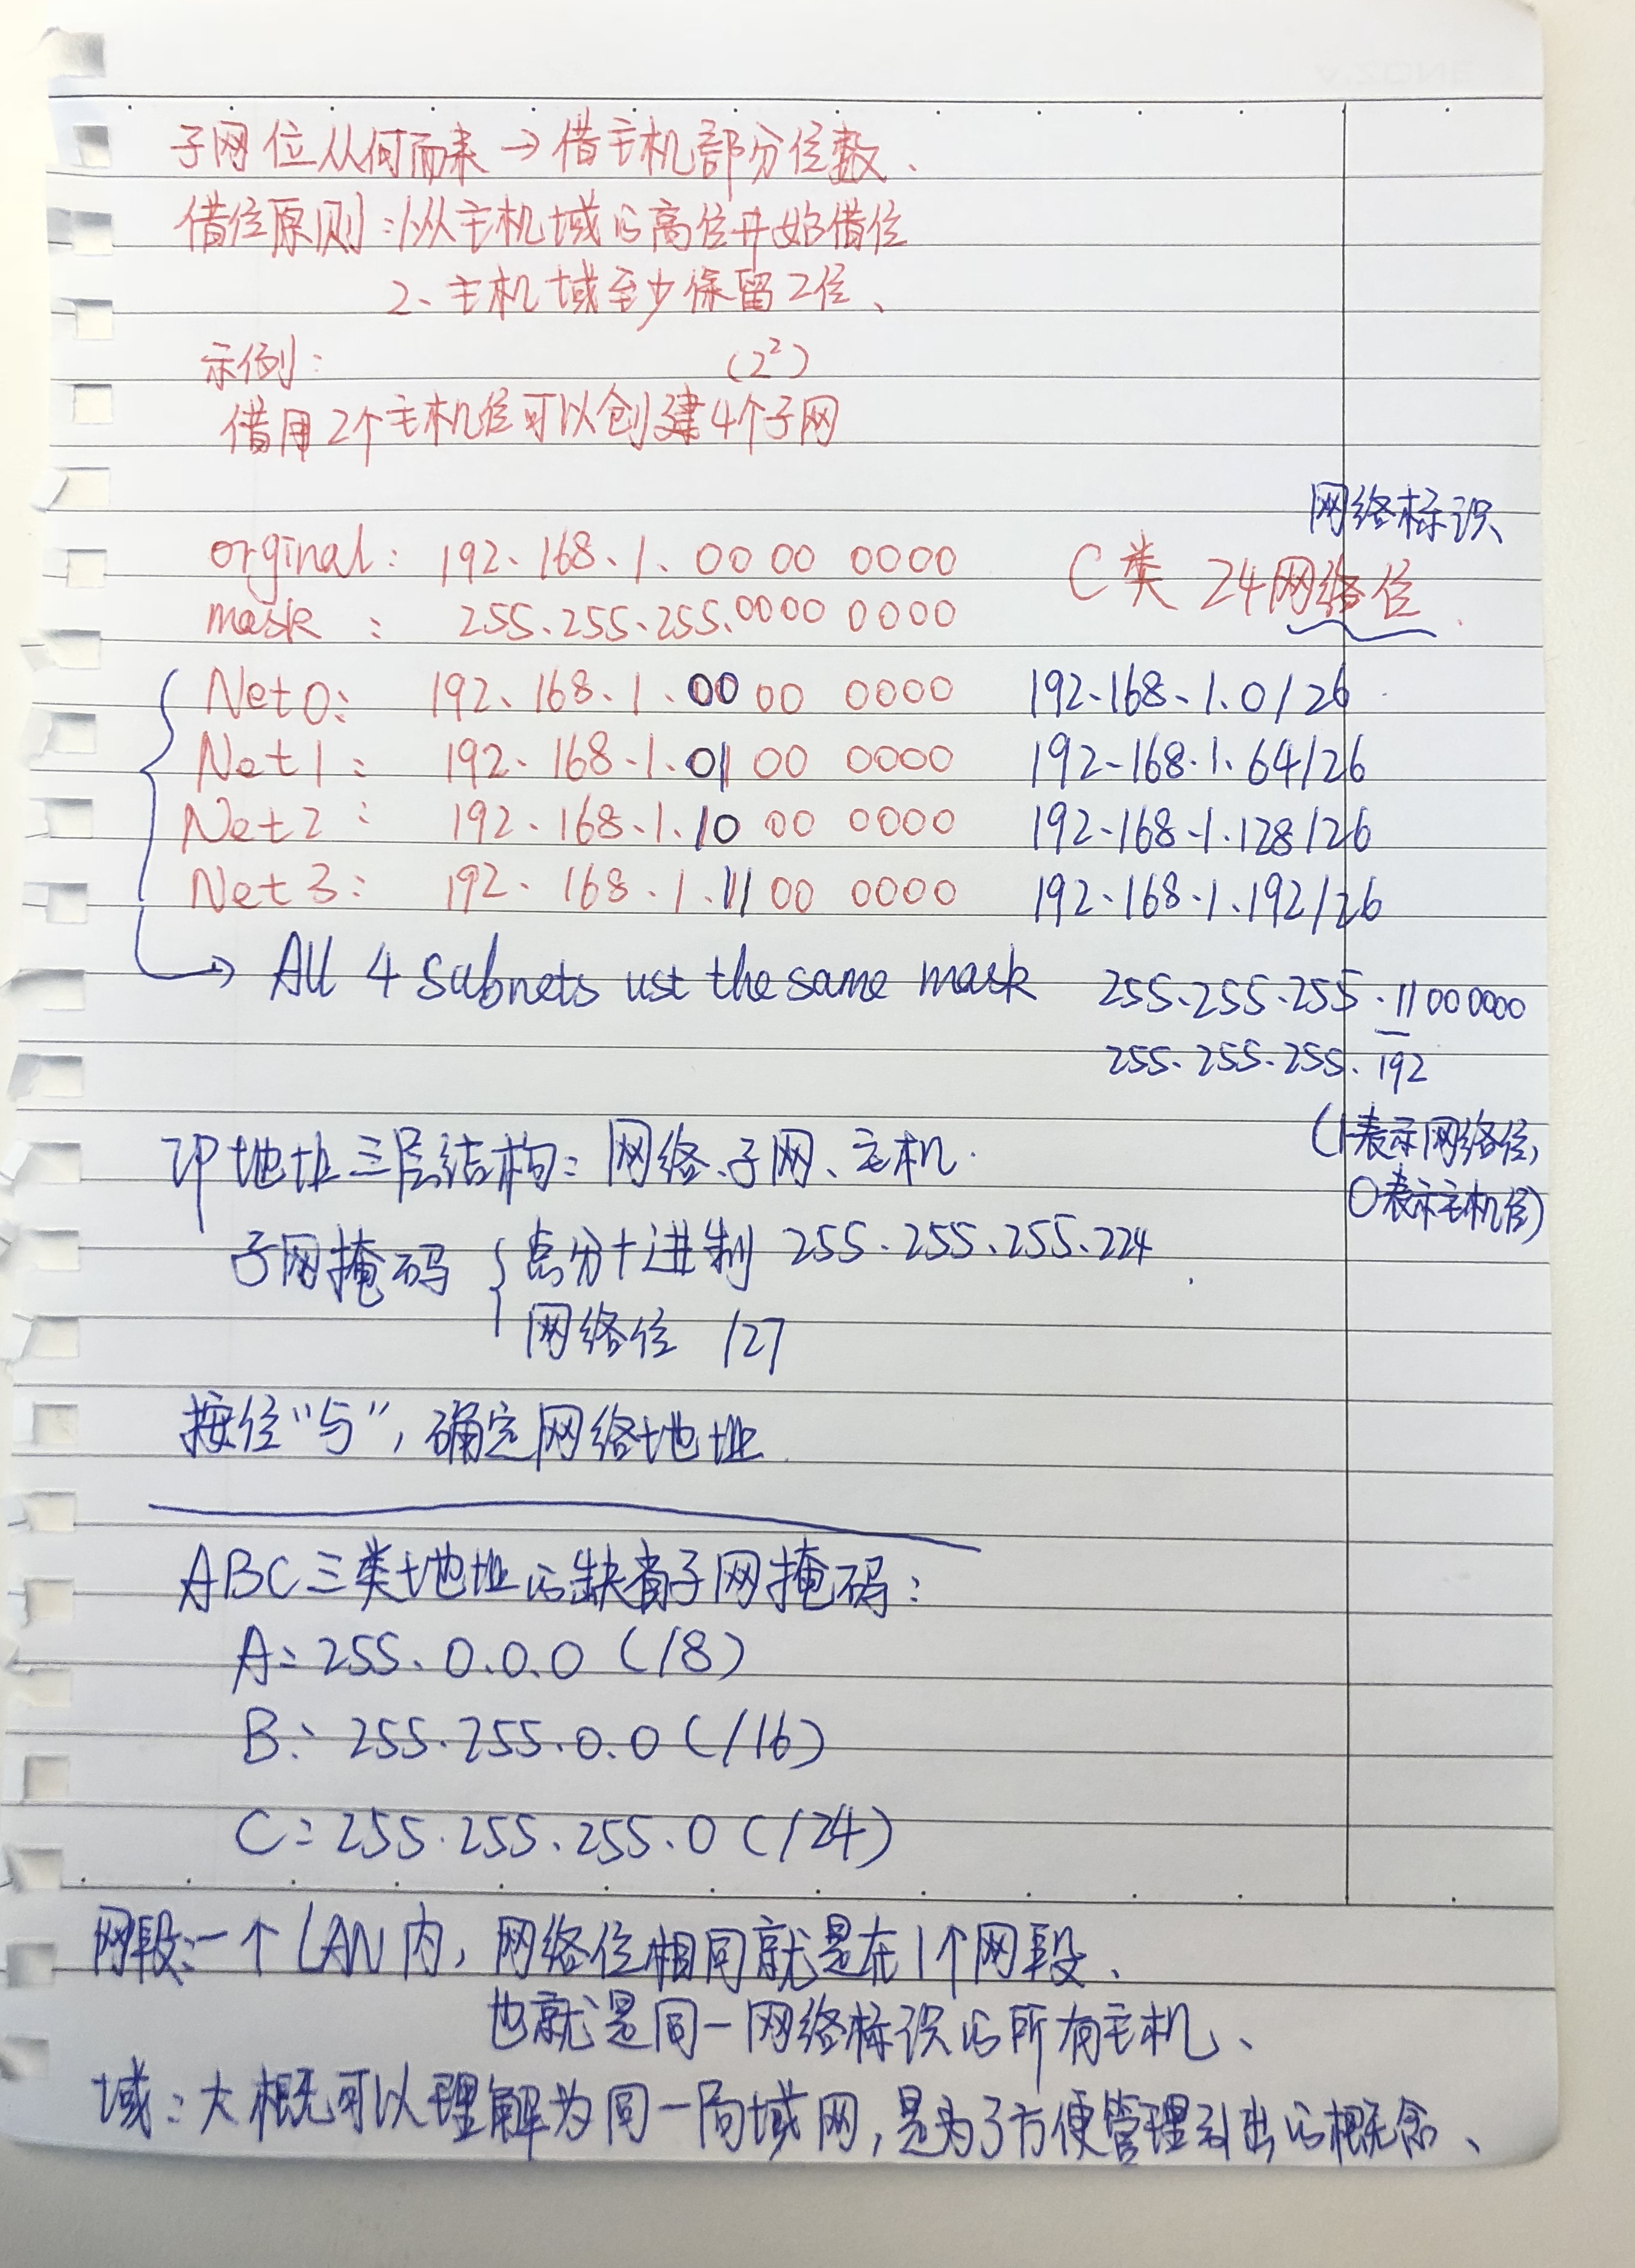 子网位从何而来→借主机部分位数、
借位原则:1从主机域的高位开始借位
2、主机域至少保留2位、
示例:
(2²)
借用2个主机位可以创建4个子网
网络标识
orginal: 192.168.1.0000 0000 C类 24网络位.
mask : 255.255.255.0000 0000
Net0: 192.168.1.0000 0000 192.168.1.0/26
Net1: 192.168.1.0100 0000 192.168.1.64/26
Net2: 192.168.1.1000 0000 192.168.1.128/26
Net3: 192.168.1.1100 0000 192.168.1.192/26
→ All 4 subnets ust the same mask 255.255.255.11000000
255.255.255.192
(1表示网络位,
0表示主机位)
IP地址三层结构:网络、子网、主机.
子网掩码 { 点分十进制 255.255.255.224
网络位 /27
按位“与”,确定网络地址.
ABC三类地址的缺省子网掩码:
A: 255.0.0.0 (/8)
B: 255.255.0.0 (/16)
C: 255.255.255.0 (/24)
网段:一个LAN内,网络位相同就是在1个网段、
也就是同一网络标识的所有主机、
域:大概可以理解为同一局域网,是为了方便管理引出的概念、